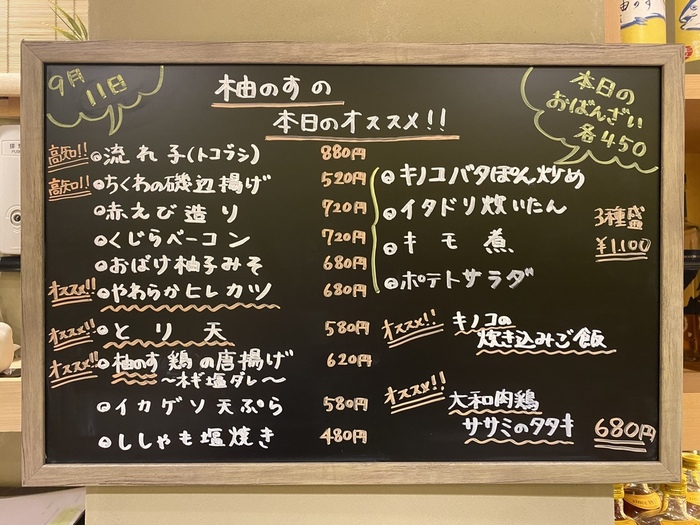 9月
11日
柚のすの
本日のオススメ!!
本日の
おばんざい
各450
高知!! 流れ子(トコブシ) 880円
高知!! ちくわの磯辺揚げ 520円
赤えび造り 720円
くじらベーコン 720円
おばけ柚子みそ 680円
オススメ!! やわらかヒレカツ 680円
オススメ!! とり天 580円
オススメ!! 柚のす鶏の唐揚げ 620円
〜ネギ塩ダレ〜
イカゲソ天ぷら 580円
ししゃも塩焼き 480円
キノコバタぽん炒め
イタドリ炊いたん
キモ煮
ポテトサラダ
3種盛
¥1,100
オススメ!! キノコの
炊き込みご飯
オススメ!!
大和肉鶏
ササミのタタキ 680円